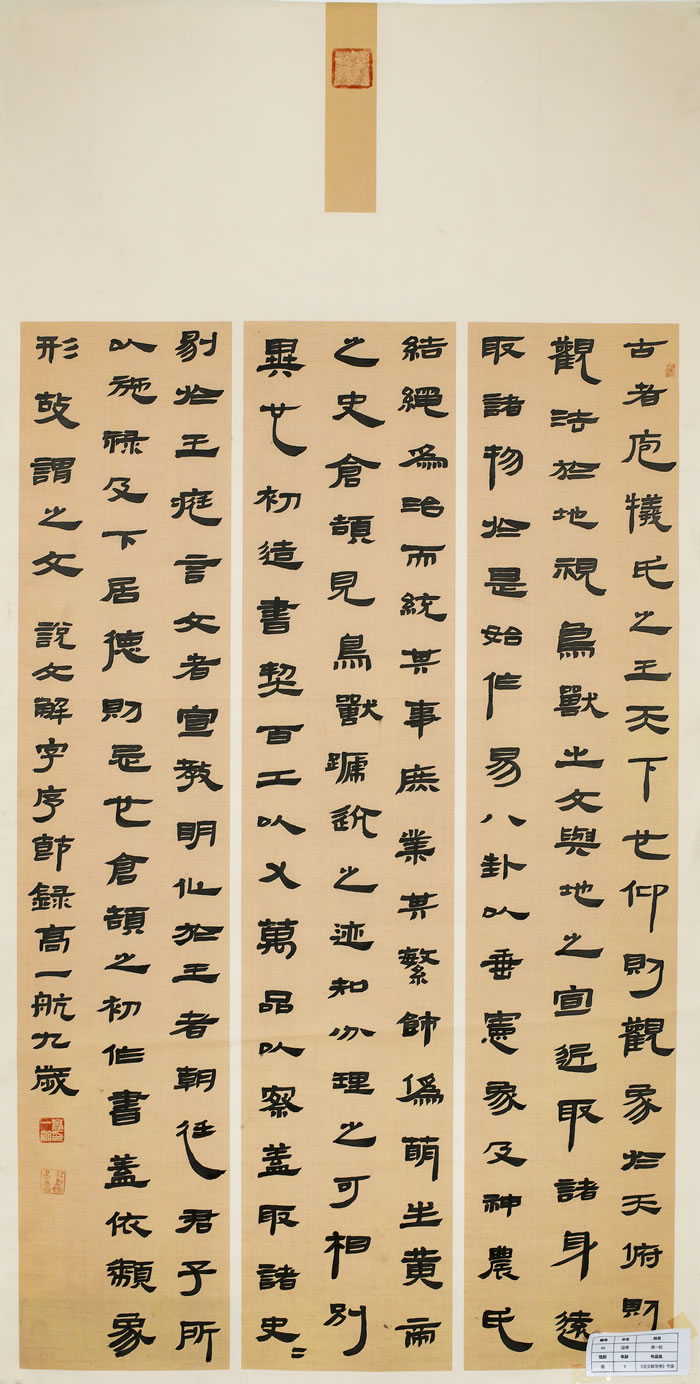 古者庖犧氏之王天下也仰則觀象於天俯則
觀法於地視鳥獸之文與地之宜近取諸身遠
取諸物於是始作易八卦以垂憲象及神農氏
結繩為治而統其事庶業其繁飾偽萌生黃帝
之史倉頡見鳥獸蹏迒之迹知分理之可相別
異也初造書契百工以乂萬品以察蓋取諸夬〻
於王庭言文者宣教明化於王者朝廷君子所
以施祿及下居德則忌也倉頡之初作書蓋依類象
形故謂之文 說文解字序節錄高一航九歲
姓名
高一航
性别 年龄 作品名
9 《说文解字序》节录